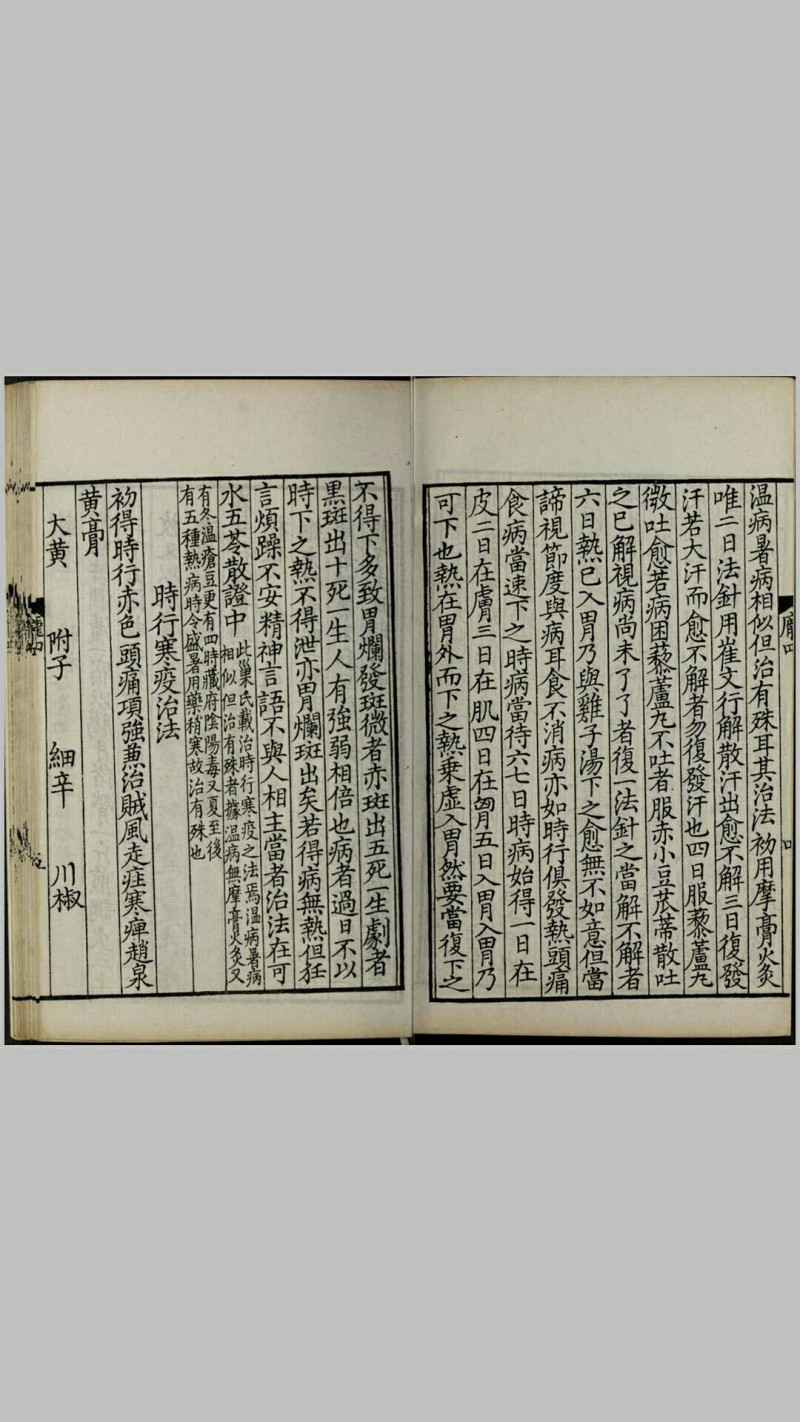 温病暑病相似但治有殊耳其治法初用摩膏火灸
唯二日法針用崔文行解散汗出愈不解三日復發
汗若大汗而愈不解者勿復發汗也四日服藜蘆丸
微吐愈若病困藜蘆丸不吐者服赤小豆苽蒂散吐
之已解視病尚未了了者復一法針之當解不解者
六日熱已入胃乃與雞子湯下之愈無不如意但當
諦視節度與病耳食不消病亦如時行俱發熱頭痛
食病當速下之時病當待六七日時病始得一日在
皮二日在膚三日在肌四日在胷五日入胃入胃乃
可下也熱在胃外而下之熱乗虚入胃然要當復下之
不得下多致胃爛發斑微者赤斑出五死一生劇者
黒斑出十死一生人有強弱相倍也病者過日不以
時下之熱不得泄亦胃爛斑出矣若得病無熱但狂
言煩躁不安精神言語不與人相主當者治法在可
水五苓散證中
此巢氏載治時行寒疫之法焉温病暑病
相似但治有殊者據温病無摩膏火灸又
有冬温瘡豆更有四時藏府陰陽毒又夏至後
有五種熱病時令盛暑用藥稍寒故治有殊也
時行寒疫治法
初得時行赤色頭痛項強兼治賊風走疰寒痺趙泉
黄膏
大黄 附子 細辛 川椒